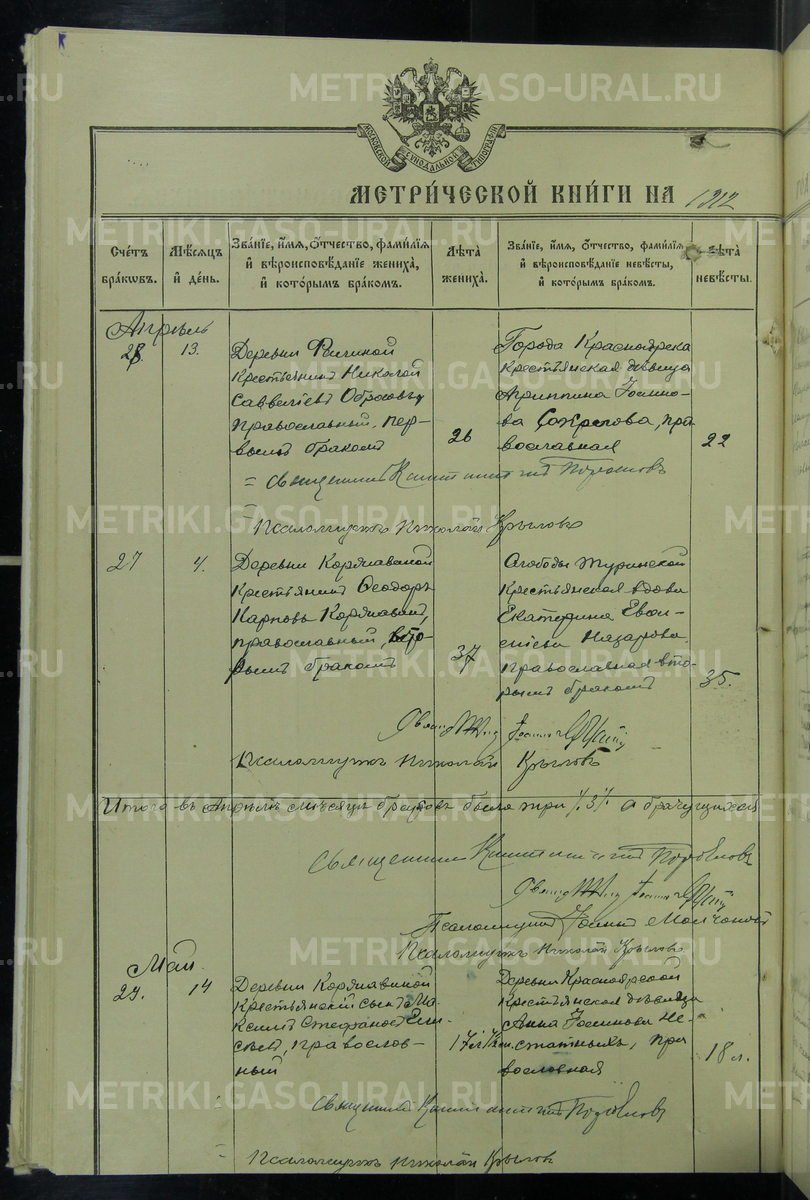 METRIKI.GASO-URAL.RU
МОСКОВСКОЙ СѴНОДАЛЬНОЙ ТИПОГРАФІИ
МЕТРИ́ЧЕСКОЙ КНИ́ГИ НА 1912
Сче́тъ бра́ковъ.
Мѣ́сяцъ и де́нь.
Зва́нїе, и́мя, о́тчество, фами́лїя и вѣроисповѣ́данїе жениха́, и кото́рымъ бра́комъ.
Лѣта̀ жениха̀.
Зва́нїе, и́мя, о́тчество, фами́лїя и вѣроисповѣ́данїе невѣ́сты, и кото́рымъ бра́комъ.
Лѣта̀ невѣ́сты.
Апрѣль
13.
Деревни
крестьянинъ Николай
Саввеліевъ
православный, пер-
вымъ бракомъ
26
Города Красноярска
крестьянская дѣвица
Агриппина Іоанно-
ва православная
22
Священникъ
Псаломщикъ Николай Крыловъ
27
4.
Деревни Корявиной
крестьянинъ Ѳеодоръ
Карповъ Корявинъ,
православный, вто-
рымъ бракомъ
37
Слободы Туринской
крестьянская вдова
Екатерина
Назарова
православная вто-
рымъ бракомъ
35.
Іоаннъ
Псаломщикъ Николай Крыловъ
Итого въ Апрѣлѣ мѣсяцѣ браковъ было три /3/ а брачущихся
Священникъ
Іоаннъ
Псаломщикъ Іоаннъ
Псаломщикъ Николай Крыловъ
Май
14
Деревни Корявиной
крестьянскій сынъ Ма-
ксимъ Стефановъ Ели-
сѣевъ, православ-
ный
Деревни Красноярской
крестьянская дѣвица
Анна Іоаннова
православная
18 л.
Священникъ
Псаломщикъ Николай Крыловъ